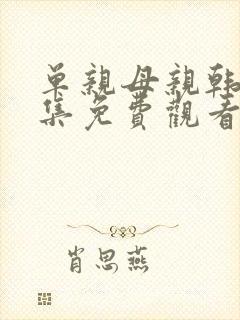 單親母親韩
集免費觀看
肖思燕